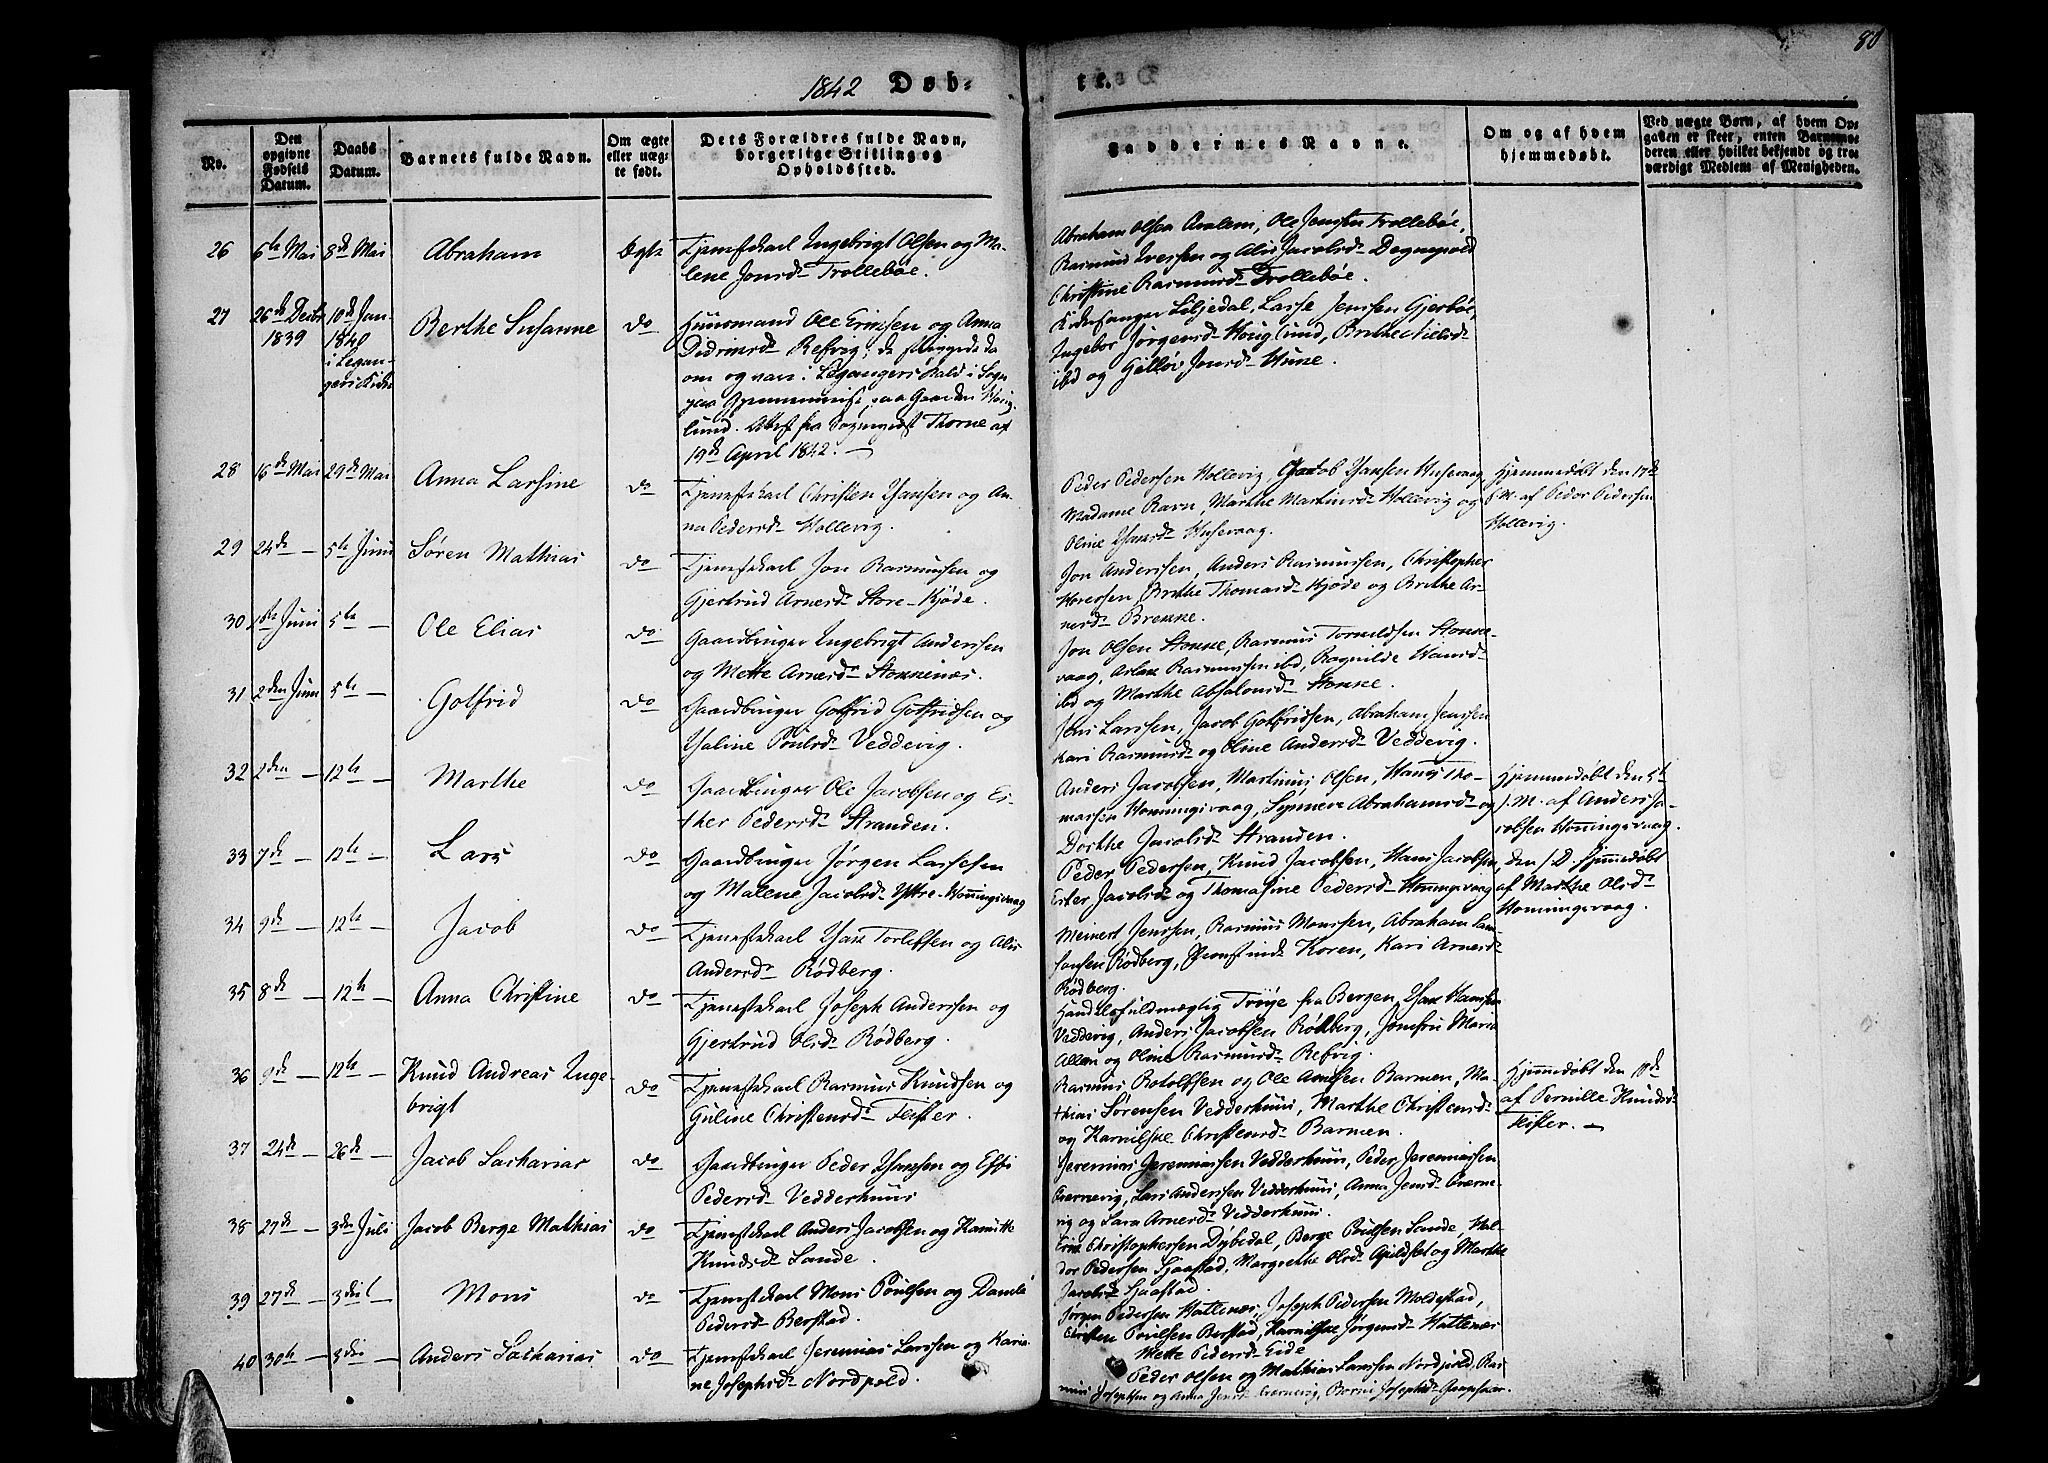 80
1842 Døb-
te.
No.
Den opgivne Fødsels Datum.
Daabs Datum.
Barnets fulde Navn.
Om ægte eller uægte født.
Dets Forældres fulde Navn, borgerlige Stilling og Opholdssted.
Faddernes Navne.
Om og af hvem hjemmedøbt.
Ved uægte Børn, af hvem Opgaven er skeet, enten Barnemoderen eller hvilket bekjendt og troværdigt Medlem af Menigheden.
26 6te Mai 8de Mai Abraham Ægte Tjenestekarl Ingebrigt Olsen og Ma-
lene Jonsd. Trollebøe.
Abraham Olsen, Ole Jonsen Trollebøe,
Rasmund Iversen og Alis Jacobsd. Degnepold
Christine Rasmusd. Trollebøe.
27 26de Decbr 1839 10de Jan- 1840 i Legan- gers Kirke Berthe Susanne do Huusmand Ole Ericksen og Anna
Didriksd. Refvig; de
om og vare i Legangers Kald i Sogn
paa Gjennemreise paa Gaarden Houg-
lund. Attest fra Sognepræst Thorne af
19de April 1842. —
Kirkesanger Liljedal, Lasse Jenssen Gjerbøe,
Ingebor Jørgensd. Houglund, Brithe Nielsd.
ibd og Gjellov Jonsd. Huse.
28 16de Mai 29de Mai Anna Larsine do Tjenestekarl Christen Hansen og An-
na Pedersd. Hollevig.
Peder Pedersen Hollevig, Jacob Hansen Husevaag
Madame Ravn, Marthe Martinusd. Hollevig og
Oline Hansd. Husevaag.
Hjemmedøbt den 17de
s. M. af Peder Pedersen
Hollevig.
29 24de — 5te Juni Søren Mathias do Tjenestekarl Jon Rasmussen og
Gjertrud Arnesd. Store-Kjøde.
Jon Andersen, Anders Rasmussen, Christopher
Iversen, Brithe Thomasd. Kjøde og Brithe Ar-
nesd. Bremne.
30 1ste Juni 5te — Ole Elias do Gaardbruger Ingebrigt Andersen
og Mette Arnesd. Stokkenæs.
Jon Olsen Stokke, Rasmus Torkildsen Stokke-
vaag, Rasmussen ibd, Ragnilde Hansd.
ibd og Marthe Absalonsd. Stokke.
31 2den Juni 5te — Golfrid do Gaardbruger Golfrid Golfridsen og
Haline Poulsd. Veddevig.
Jens Larssen, Jacob Golfridsen, Abraham Jenssen
Kari Rasmusd. og Oline Andersd. Veddevig.
32 2den — 12te — Marthe do Gaardbruger Ole Jacobsen og Es-
ther Pedersd. Stranden.
Anders Jacobsen, Martinus Olsen, Hans Tho-
massen Honningsvaag, Synneve Abrahamsd. og
Dorthe Jacobsd. Stranden.
Hjemmedøbt den 5te
s. M. af Anders Ja-
cobsen Honningsvaag.
33 7de — 12te — Lars do Gaardbruger Jørgen Lassesen
og Malene Jacobsd. Ystre-Honningsvaag
Peder Pedersen, Knud Jacobsen, Hans Jacobsen,
Ester Jacobsd. og Thomasine Pedersd. Honningsvaag
den s. D. hjemmedøbt
af Marthe Olsd.
Honningsvaag.
34 9de — 12te — Jacob do Tjenestekarl Hans Torlefsen og Alis
Andersd. Rødberg.
Meinert Jenssen, Rasmus Monssen, Abraham
Rødberg, Koren, Kari Arnesd.
Rødberg.
35 8de — 12te — Anna Christine do Tjenestekarl Joseph Andersen og
Gjertrud Olsd. Rødberg.
Handelsfuldmægtig Trøye fra Bergen, Hans Hansen
Veddevig, Anders Jacobsen Rødberg, Jomfru Maria
Allen og Oline Rasmusd. Refvig.
36 9de — 12te — Knud Andreas Inge-
brigt do Tjenestekarl Rasmus Knudsen og
Guline Christensd. Feister.
Rasmus Rotolfsen og Ole Arnesen Barmen, Ma-
thias Sørensen Vedderhuus, Marthe Christensd.
og Karnilske Christensd. Barmen.
Hjemmedøbt den 10de
af Pernille Knudsd.
Feister. —
37 24de — 26de — Jacob Sacharias do Gaardbruger Peder Hansen og Effi
Pedersd. Vedderhuus
Jeremias Jeremiassen Vedderhuus, Peder Jeremiassen
Overnevig, Lars Anderssen Vedderhuus, Anna Jensd. Overne-
vig og Sara Arnesd. Vedderhuus.
38 27de — 3die Juli Jacob Berge Mathias do Tjenestekarl Anders Jacobsen og Kanutte
Knudsd. Sande.
Christophersen Dybedal, Berge Poulsen Sande, Hal-
dor Pedersen Sjaastad, Margrethe Olsd. Apildset og Marthe
Jacobsd. Sjaastad.
39 27de — 3die — Mons do Tjenestekarl Mons Poulsen og
Pedersd. Berstad.
Jørgen Pedersen Hattenæs, Joseph Pedersen Moldestad,
Christen Poulsen Berstad, Karnilske Jørgensd. Hattenæs
Mette Pedersd. Eide
40 30te — 3die — Anders Sacharias do Tjenestekarl Jeremias Larssen og Karia-
ne Josephsd. Nordpold.
Peder Olsen og Mathias Larssen Nordpold, Ras-
mus Josephsen og Anna Jensd. Overnevig, Josephsd.